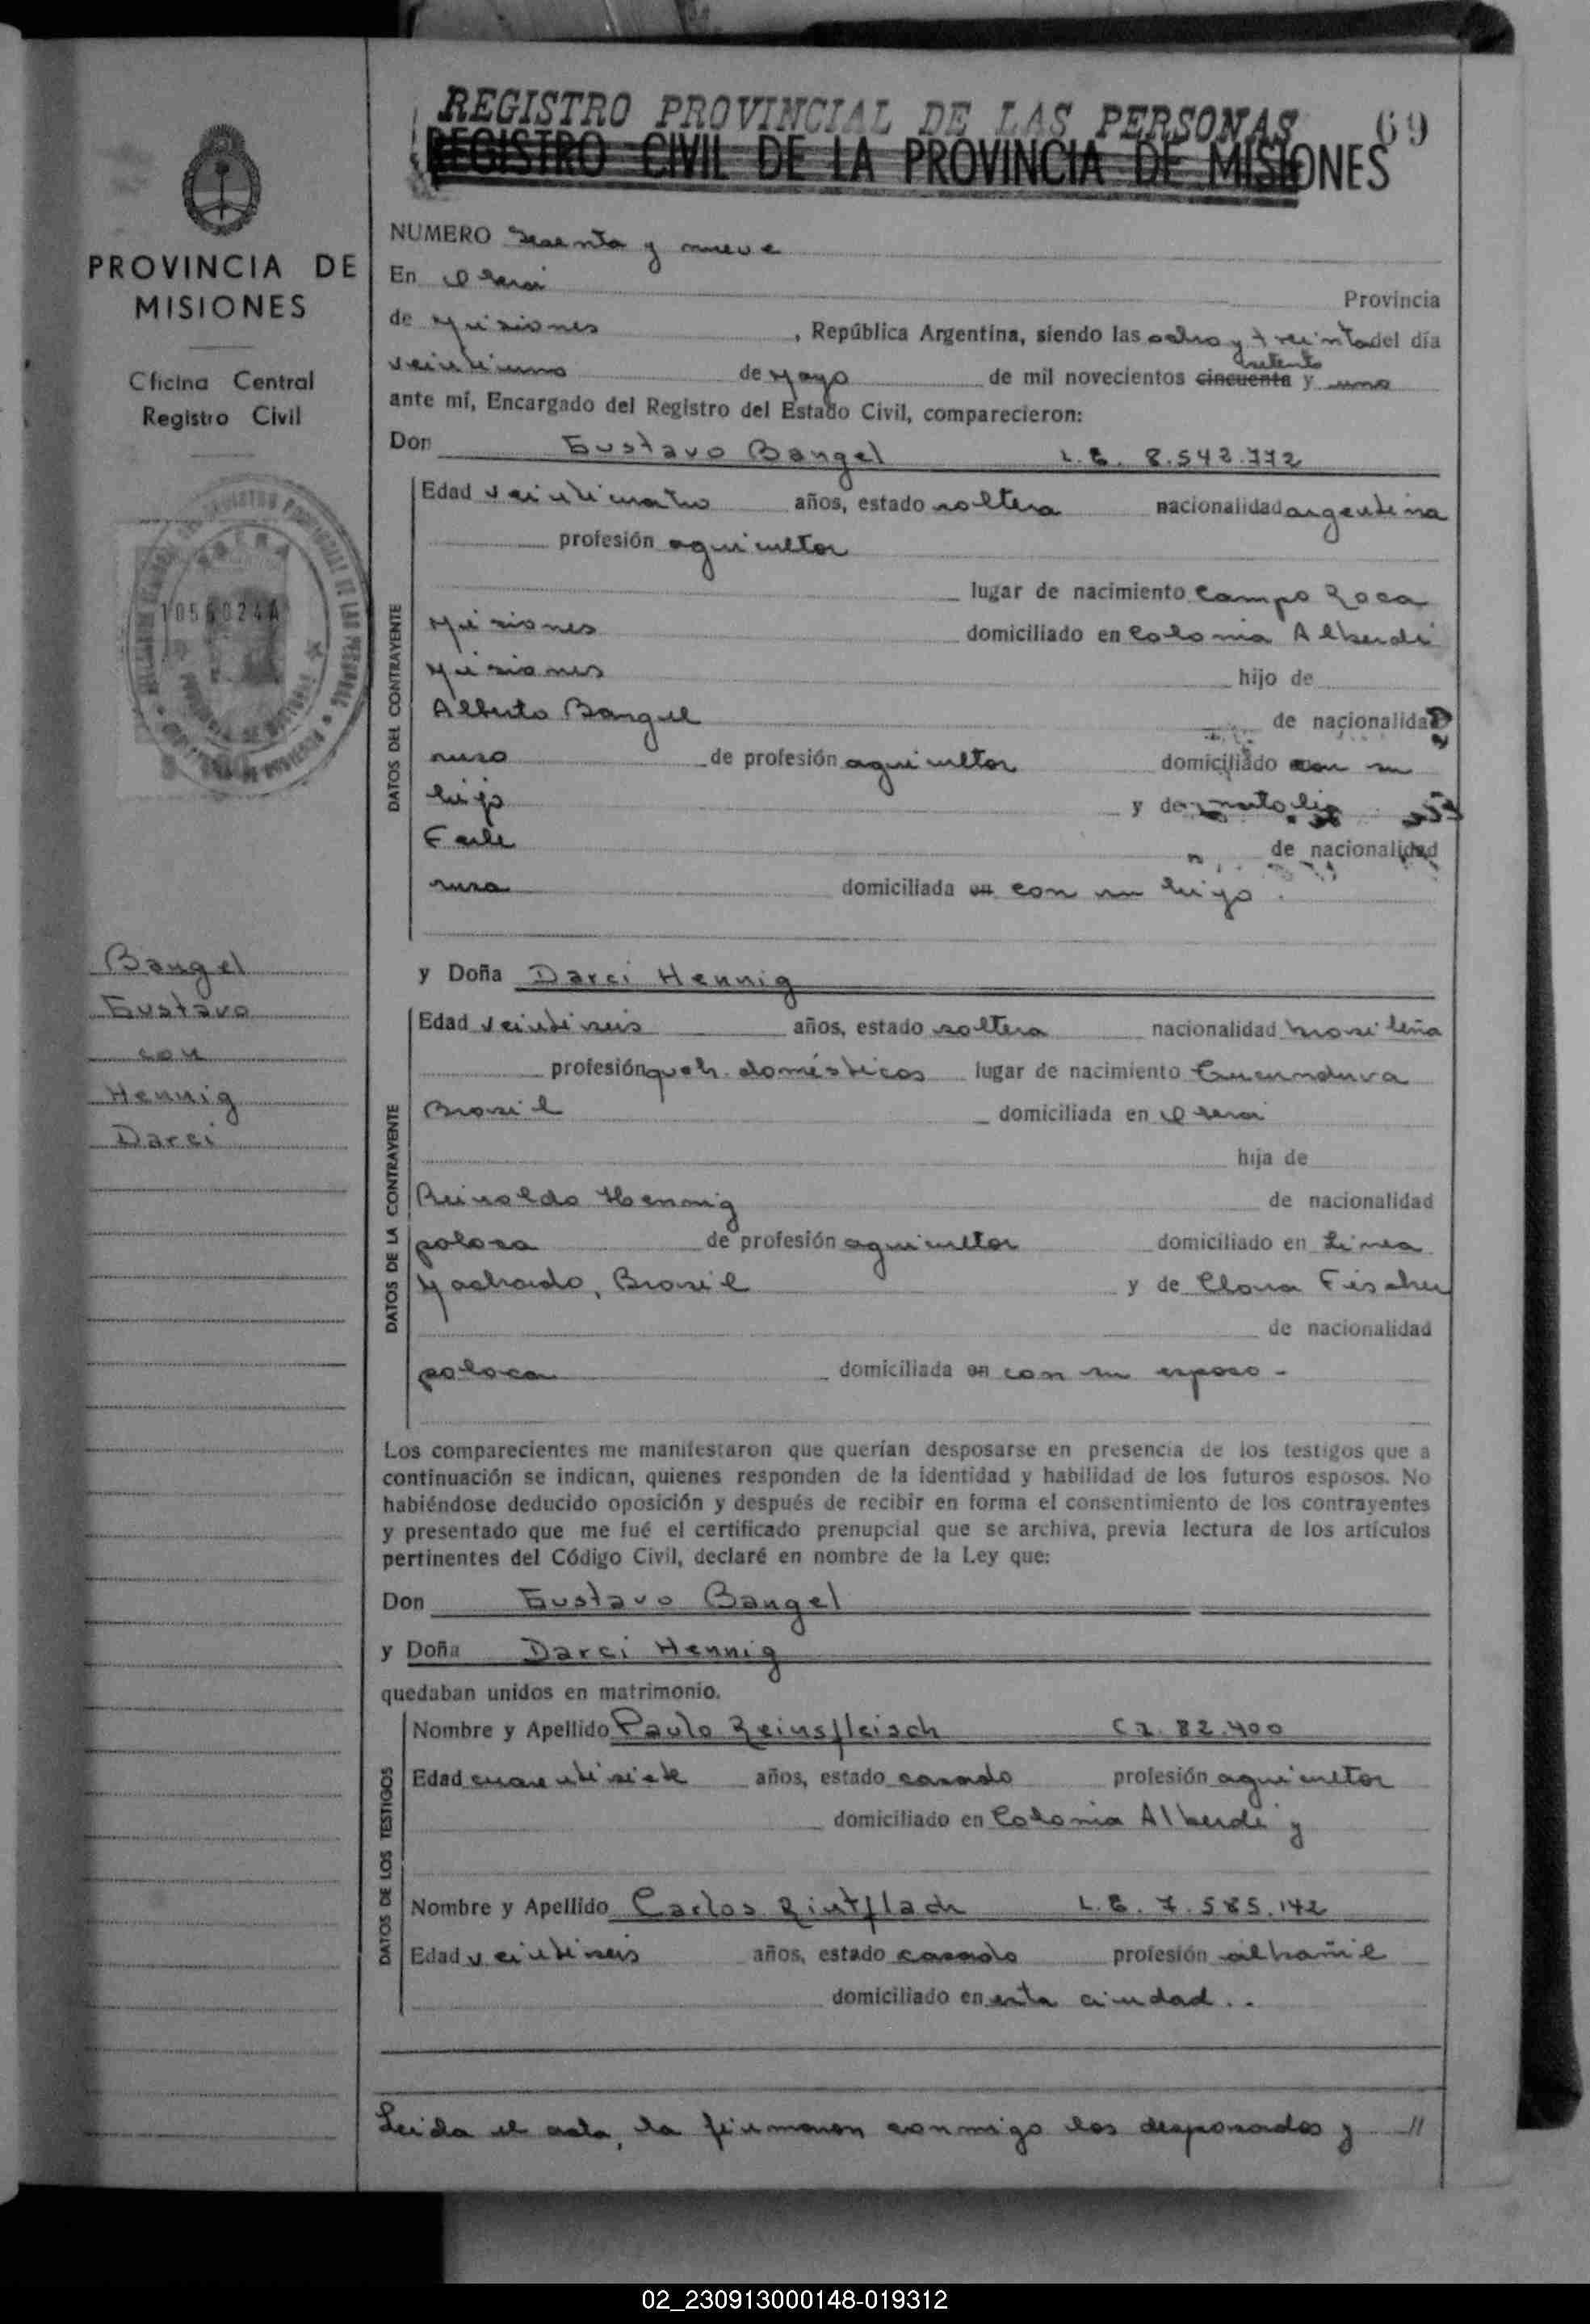 REGISTRO PROVINCIAL DE LAS PERSONAS 69
REGISTRO CIVIL DE LA PROVINCIA DE MISIONES
PROVINCIA DE
MISIONES
Oficina Central
Registro Civil
10560244
Bangel
Gustavo
con
Hennig
Darci
NUMERO Sesenta y nueve
En Oberá Provincia
de Misiones, República Argentina, siendo las ocho y treinta del día
veintiuno de Mayo de mil novecientos cincuenta setenta y uno
ante mí, Encargado del Registro del Estado Civil, comparecieron:
Don Gustavo Bangel L.E. 8.542.772
DATOS DEL CONTRAYENTE
Edad veinticuatro años, estado soltero nacionalidad argentina
profesión agricultor
lugar de nacimiento Campo Roca
Misiones domiciliado en Colonia Alberdi
Misiones hijo de
Alberto Bangel de nacionalidad
ruso de profesión agricultor domiciliado con su
hijo y de Natalia
de nacionalidad
rusa domiciliada en con su hijo.
y Doña Darci Hennig
DATOS DE LA CONTRAYENTE
Edad veintiseis años, estado soltera nacionalidad brasileña
profesión queh. domésticos lugar de nacimiento
Brasil domiciliada en Oberá
hija de
Reinoldo Hennig de nacionalidad
polaca de profesión agricultor domiciliado en Linea
Machado, Brasil y de Clara Fischer
de nacionalidad
polaca domiciliada en con su esposo -
Los comparecientes me manifestaron que querían desposarse en presencia de los testigos que a
continuación se indican, quienes responden de la identidad y habilidad de los futuros esposos. No
habiéndose deducido oposición y después de recibir en forma el consentimiento de los contrayentes
y presentado que me fué el certificado prenupcial que se archiva, previa lectura de los artículos
pertinentes del Código Civil, declaré en nombre de la Ley que:
Don Gustavo Bangel
y Doña Darci Hennig
quedaban unidos en matrimonio.
DATOS DE LOS TESTIGOS
Nombre y Apellido Paulo Reinsfleisch C I. 82.400
Edad cuarentisiete años, estado casado profesión agricultor
domiciliado en Colonia Alberdi y
Nombre y Apellido Carlos Rintflach L.E. 7.585.142
Edad veintiseis años, estado casado profesión albañil
domiciliado en esta ciudad..
Leida el acta, la firmaron conmigo los desposados y //
02_230913000148-019312